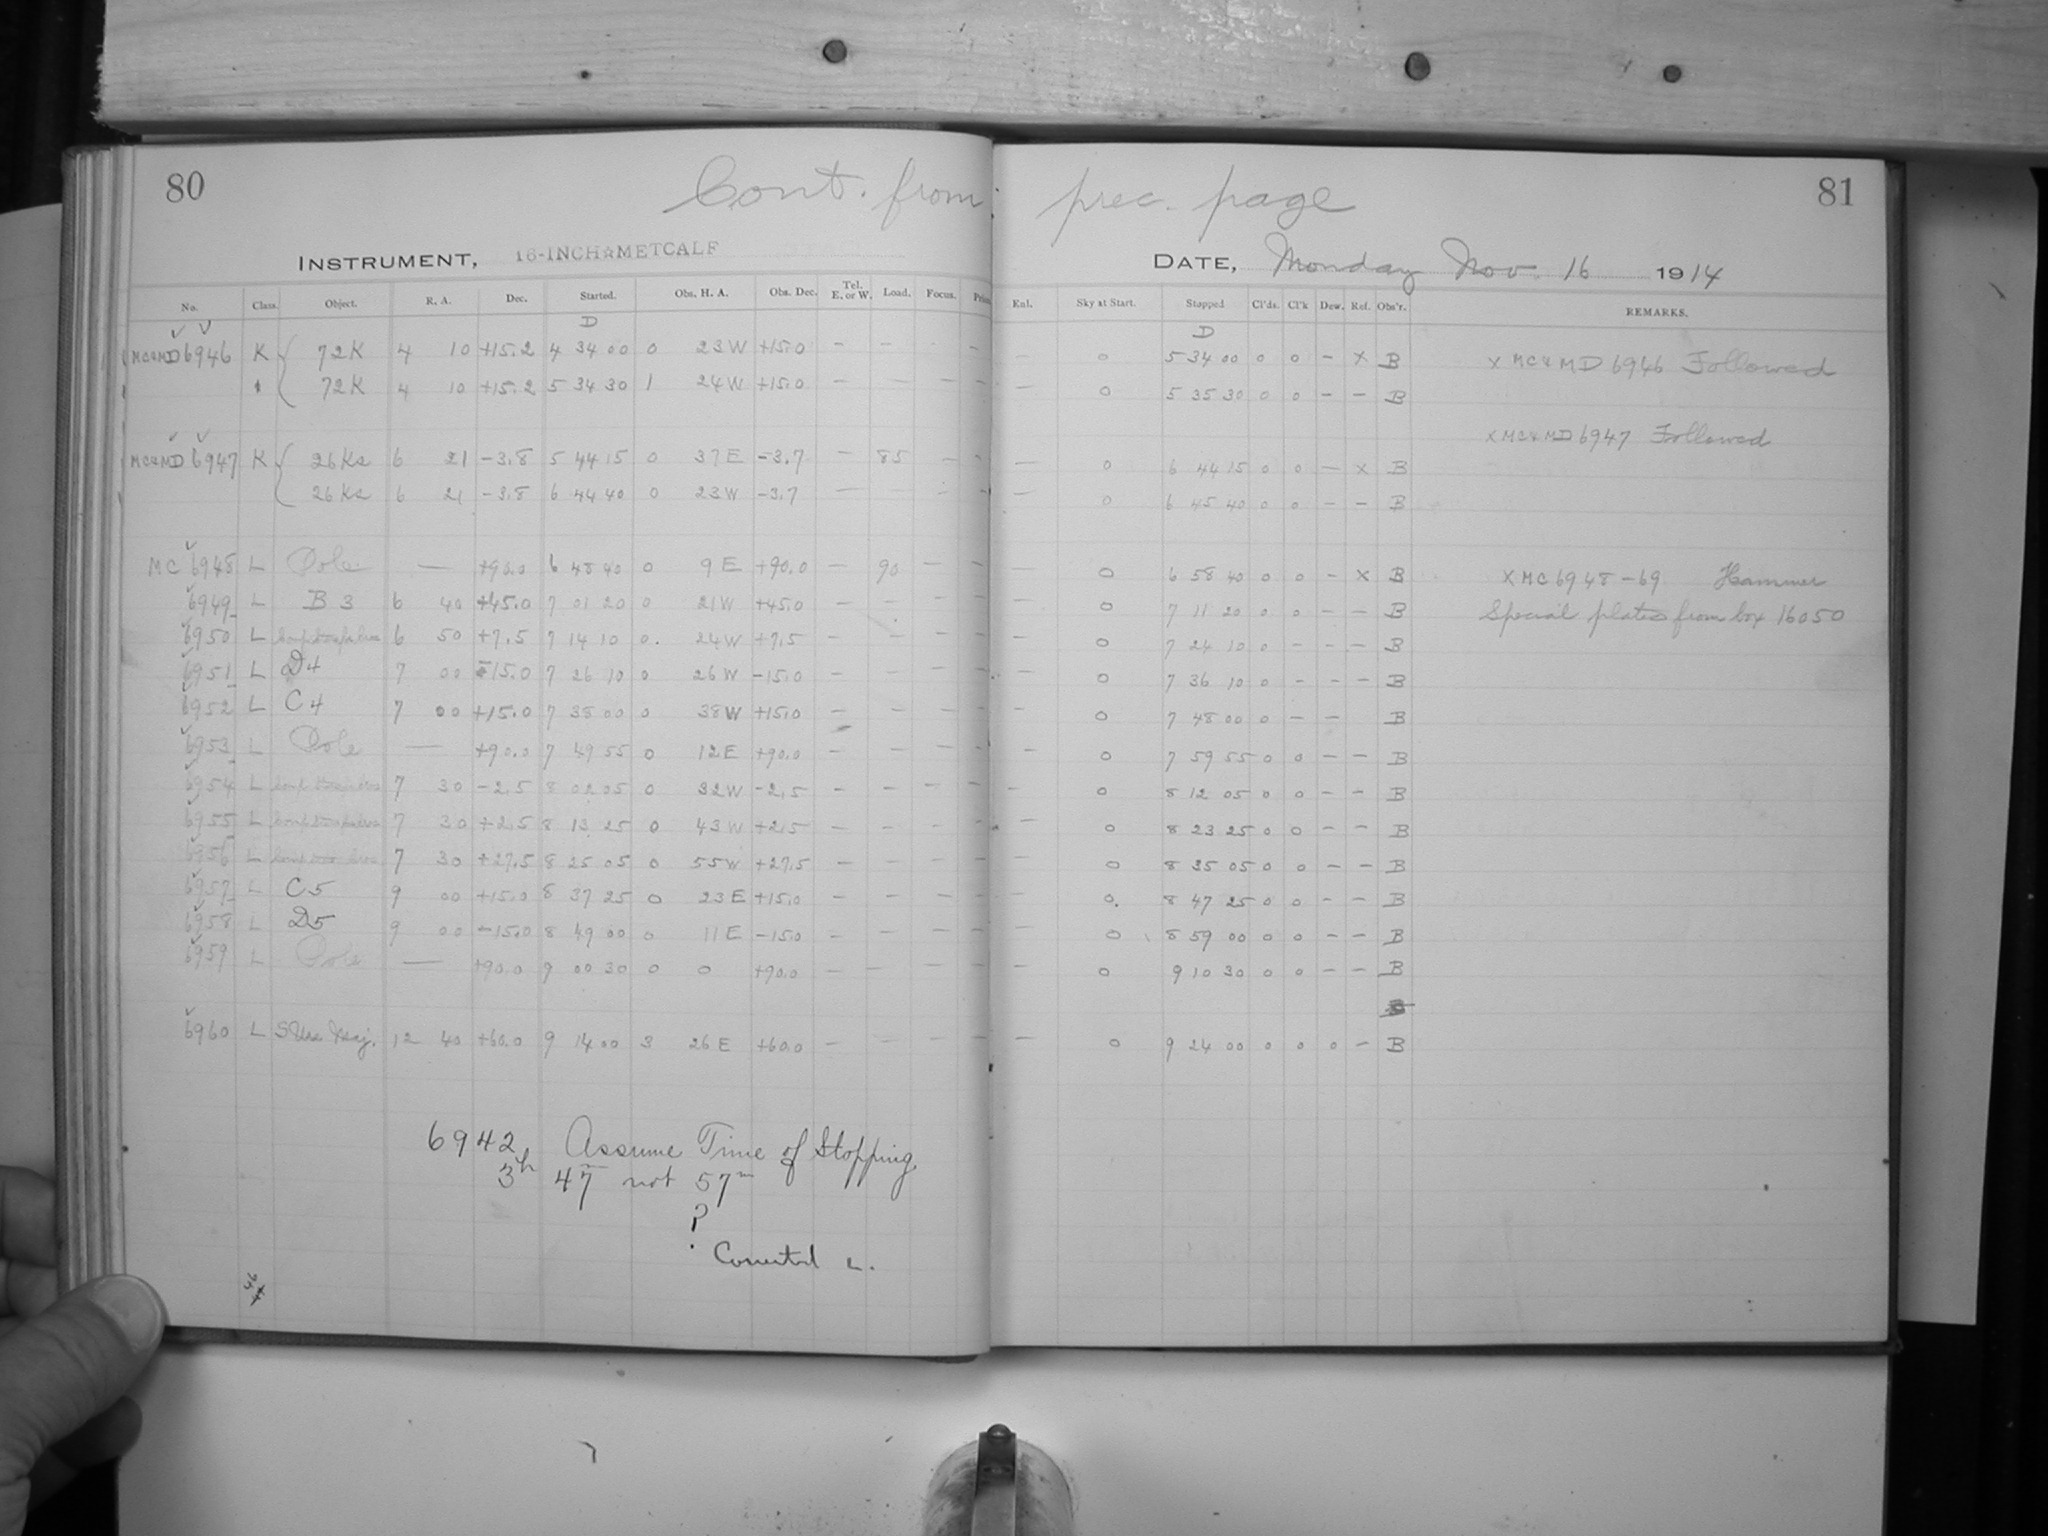 80 Cont. from prec. page 81
INSTRUMENT, 16-INCH☆METCALF DATE, Monday Nov. 16 1914
No. Class. Object. R. A. Dec. Started. Obs. H. A. Obs. Dec. Tel. E. or W. Load. Focus. Enl. Sky at Start. Stopped Cl'ds. Cl'k Dew. Ref. Obs'r. REMARKS.
D D
MC&MD 6946 K { 72K 4 10 +15.2 4 34 00 0 23W +15.0 – – – – – 0 5 34 00 0 0 – X B X MC&MD 6946 Followed
72K 4 10 +15.2 5 34 30 1 24W +15.0 – – – – – 0 5 35 30 0 0 – – B
X MC&MD 6947 Followed
MC&MD 6947 K { 26Ks 6 21 –3.8 5 44 15 0 37E –3.7 – 85 – – – 0 6 44 15 0 0 – X B
26Ks 6 21 –3.8 6 44 40 0 23W –3.7 – – – – – 0 6 45 40 0 0 – – B
MC 6948 L Pole — +90.0 6 48 40 0 9E +90.0 – 90 – – – 0 6 58 40 0 0 – X B X MC 6948–69 Hammer
6949 L B3 6 40 +45.0 7 01 20 0 21W +45.0 – – – – – 0 7 11 20 0 0 – – B Special plates from box 16050
6950 L 6 50 +7.5 7 14 10 0. 24W +7.5 – – – – – 0 7 24 10 0 – – – B
6951 L D4 7 00 –15.0 7 26 10 0 26W –15.0 – – – – – 0 7 36 10 0 – – – B
6952 L C4 7 00 +15.0 7 38 00 0 38W +15.0 – – – – – 0 7 48 00 0 – – B
6953 L Pole — +90.0 7 49 55 0 12E +90.0 – – – – – 0 7 59 55 0 0 – – B
6954 L 7 30 –2.5 8 02 05 0 32W –2.5 – – – – – 0 8 12 05 0 0 – – B
6955 L 7 30 +2.5 8 13 25 0 43W +2.5 – – – – – 0 8 23 25 0 0 – – B
6956 L 7 30 +27.5 8 25 05 0 55W +27.5 – – – – – 0 8 35 05 0 0 – – B
6957 L C5 9 00 +15.0 8 37 25 0 23E +15.0 – – – – – 0. 8 47 25 0 0 – – B
6958 L D5 9 00 –15.0 8 49 00 0 11E –15.0 – – – – – 0 8 59 00 0 0 – – B
6959 L Pole — +90.0 9 00 30 0 0 +90.0 – – – – – 0 9 10 30 0 0 – – B
6960 L S Urs Maj. 12 40 +60.0 9 14 00 3 26E +60.0 – – – – – 0 9 24 00 0 0 0 – B
6942 Assume Time of Stopping
3h 47 not 57m
?
Corrected L.